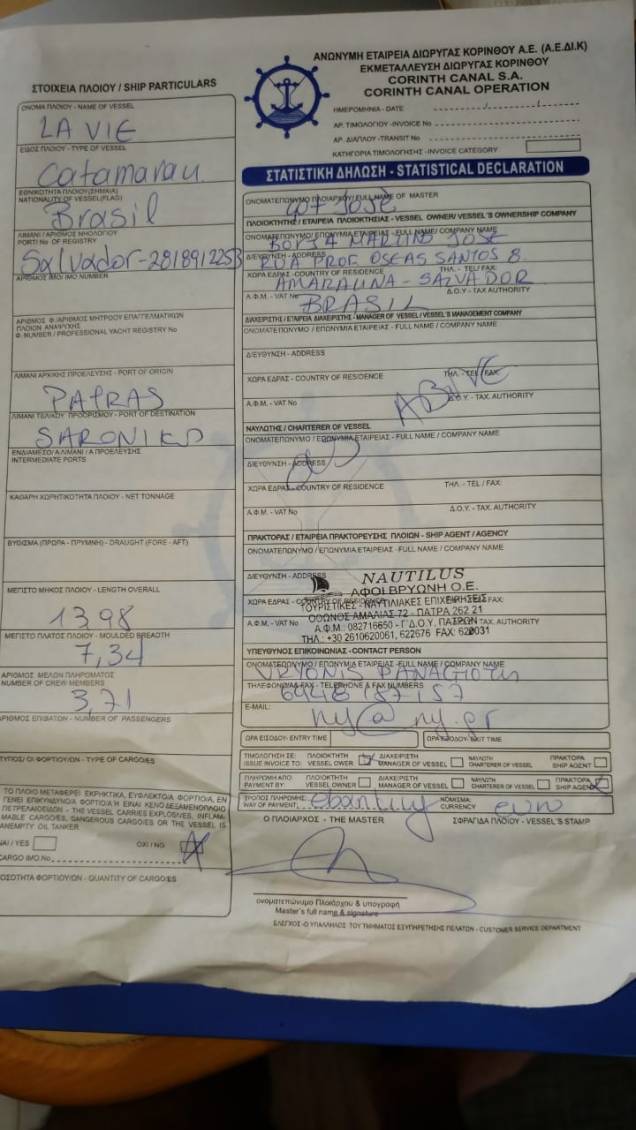 ΑΝΩΝΥΜΗ ΕΤΑΙΡΕΙΑ ΔΙΩΡΥΓΑΣ ΚΟΡΙΝΘΟΥ Α.Ε. (Α.Ε.ΔΙ.Κ)
ΕΚΜΕΤΑΛΛΕΥΣΗ ΔΙΩΡΥΓΑΣ ΚΟΡΙΝΘΟΥ
CORINTH CANAL S.A.
CORINTH CANAL OPERATION
ΗΜΕΡΟΜΗΝΙΑ - DATE
ΑΡ. ΤΙΜΟΛΟΓΙΟΥ - INVOICE No
ΑΡ. ΔΙΑΠΛΟΥ - TRANSIT No
ΚΑΤΗΓΟΡΙΑ ΤΙΜΟΛΟΓΗΣΗΣ - INVOICE CATEGORY
ΣΤΟΙΧΕΙΑ ΠΛΟΙΟΥ / SHIP PARTICULARS
ΟΝΟΜΑ ΠΛΟΙΟΥ - NAME OF VESSEL
LA VIE
ΕΙΔΟΣ ΠΛΟΙΟΥ - TYPE OF VESSEL
Catamaran
ΕΘΝΙΚΟΤΗΤΑ ΠΛΟΙΟΥ (ΣΗΜΑΙΑ)
NATIONALITY OF VESSEL(FLAG)
Brasil
ΛΙΜΑΝΙ / ΑΡΙΘΜΟΣ ΝΗΟΛΟΓΙΟΥ
PORT/ No OF REGISTRY
Salvador-
ΑΡΙΘΜΟΣ IMO/ IMO NUMBER
ΑΡΙΘΜΟΣ Φ./ΑΡΙΘΜΟΣ ΜΗΤΡΩΟΥ ΕΠΑΓΓΕΛΜΑΤΙΚΩΝ
ΠΛΟΙΩΝ ΑΝΑΨΥΧΗΣ
Φ. NUMBER / PROFESSIONAL YACHT REGISTRY No
ΛΙΜΑΝΙ ΑΡΧΙΚΗΣ ΠΡΟΕΛΕΥΣΗΣ - PORT OF ORIGIN
PATRAS
ΛΙΜΑΝΙ ΤΕΛΙΚΟΥ ΠΡΟΟΡΙΣΜΟΥ - PORT OF DESTINATION
SARONIKO
ΕΝΔΙΑΜΕΣΟ/Α ΛΙΜΑΝΙ / Α ΠΡΟΕΛΕΥΣΗΣ
INTERMEDIATE PORTS
ΚΑΘΑΡΗ ΧΩΡΗΤΙΚΟΤΗΤΑ ΠΛΟΙΟΥ - NET TONNAGE
ΒΥΘΙΣΜΑ (ΠΡΩΡΑ - ΠΡΥΜΝΗ) - DRAUGHT (FORE - AFT)
ΜΕΓΙΣΤΟ ΜΗΚΟΣ ΠΛΟΙΟΥ - LENGTH OVERALL
13,98
ΜΕΓΙΣΤΟ ΠΛΑΤΟΣ ΠΛΟΙΟΥ - MOULDED BREADTH
7,34
ΑΡΙΘΜΟΣ ΜΕΛΩΝ ΠΛΗΡΩΜΑΤΟΣ
NUMBER OF CREW MEMBERS
3,71
ΑΡΙΘΜΟΣ ΕΠΙΒΑΤΩΝ - NUMBER OF PASSENGERS
ΤΥΠΟΣ/ ΟΙ ΦΟΡΤΙΟΥ/ΩΝ - TYPE OF CARGO/ES
ΤΟ ΠΛΟΙΟ ΜΕΤΑΦΕΡΕΙ ΕΚΡΗΚΤΙΚΑ, ΕΥΦΛΕΚΤΟ/Α ΦΟΡΤΙΟ/Α, ΕΝ
ΓΕΝΕΙ ΕΠΙΚΙΝΔΥΝΟ/Α ΦΟΡΤΙΟ/Α Ή ΕΙΝΑΙ ΚΕΝΟ ΔΕΞΑΜΕΝΟΠΛΟΙΟ
ΠΕΤΡΕΛΑΙΟΕΙΔΩΝ - THE VESSEL CARRIES EXPLOSIVES, INFLAM-
MABLE CARGO/ES, DANGEROUS CARGO/ES OR THE VESSEL IS
AN EMPTY OIL TANKER
ΝΑΙ / YES
ΟΧΙ / NO
CARGO IMO No
ΠΟΣΟΤΗΤΑ ΦΟΡΤΙΟΥ/ΩΝ - QUANTITY OF CARGO/ES
ΣΤΑΤΙΣΤΙΚΗ ΔΗΛΩΣΗ - STATISTICAL DECLARATION
ΟΝΟΜΑΤΕΠΩΝΥΜΟ ΠΛΟΙΑΡΧΟΥ / FULL NAME OF MASTER
José
ΠΛΟΙΟΚΤΗΤΗΣ / ΕΤΑΙΡΕΙΑ ΠΛΟΙΟΚΤΗΣΙΑΣ - VESSEL OWNER/ VESSEL'S OWNERSHIP COMPANY
ΟΝΟΜΑΤΕΠΩΝΥΜΟ / ΕΠΩΝΥΜΙΑ ΕΤΑΙΡΕΙΑΣ - FULL NAME / COMPANY NAME
BORJA MARTINO JOSE
ΔΙΕΥΘΥΝΣΗ - ADDRESS
RUA PROF. OSEAS SANTOS 8
ΧΩΡΑ ΕΔΡΑΣ -COUNTRY OF RESIDENCE ΤΗΛ. - TEL / FAX:
AMARALINA - SALVADOR
Α.Φ.Μ. - VAT No Δ.Ο.Υ. - TAX AUTHORITY
BRASIL
ΔΙΑΧΕΙΡΙΣΤΗΣ / ΕΤΑΙΡΕΙΑ ΔΙΑΧΕΙΡΙΣΗΣ - MANAGER OF VESSEL / VESSEL'S MANAGEMENT COMPANY
ΟΝΟΜΑΤΕΠΩΝΥΜΟ / ΕΠΩΝΥΜΙΑ ΕΤΑΙΡΕΙΑΣ - FULL NAME / COMPANY NAME
ΔΙΕΥΘΥΝΣΗ - ADDRESS
ΧΩΡΑ ΕΔΡΑΣ - COUNTRY OF RESIDENCE ΤΗΛ. - TEL / FAX:
Α.Φ.Μ. - VAT No Δ.Ο.Υ. - TAX AUTHORITY
as ABOVE
ΝΑΥΛΩΤΗΣ / CHARTERER OF VESSEL
ΟΝΟΜΑΤΕΠΩΝΥΜΟ / ΕΠΩΝΥΜΙΑ ΕΤΑΙΡΕΙΑΣ - FULL NAME / COMPANY NAME
ΔΙΕΥΘΥΝΣΗ - ADDRESS
ΧΩΡΑ ΕΔΡΑΣ - COUNTRY OF RESIDENCE ΤΗΛ. - TEL / FAX:
Α.Φ.Μ. - VAT No Δ.Ο.Υ. - TAX AUTHORITY
ΠΡΑΚΤΟΡΑΣ / ΕΤΑΙΡΕΙΑ ΠΡΑΚΤΟΡΕΥΣΗΣ ΠΛΟΙΩΝ - SHIP AGENT / AGENCY
ΟΝΟΜΑΤΕΠΩΝΥΜΟ / ΕΠΩΝΥΜΙΑ ΕΤΑΙΡΕΙΑΣ - FULL NAME / COMPANY NAME
ΔΙΕΥΘΥΝΣΗ - ADDRESS
NAUTILUS
ΑΦΟΙ ΒΡΥΩΝΗ Ο.Ε.
ΧΩΡΑ ΕΔΡΑΣ - COUNTRY OF RESIDENCE
ΤΟΥΡΙΣΤΙΚΕΣ - ΝΑΥΤΙΛΙΑΚΕΣ ΕΠΙΧΕΙΡΗΣΕΙΣ
ΟΘΩΝΟΣ ΑΜΑΛΙΑΣ 72 - ΠΑΤΡΑ 262 21
Α.Φ.Μ. - VAT No TAX AUTHORITY
Α.Φ.Μ.: 082716650 - Γ' Δ.Ο.Υ. ΠΑΤΡΩΝ
ΤΗΛ.: +30 2610620061, 622676 FAX: 620031
ΥΠΕΥΘΥΝΟΣ ΕΠΙΚΟΙΝΩΝΙΑΣ - CONTACT PERSON
ΟΝΟΜΑΤΕΠΩΝΥΜΟ / ΕΠΩΝΥΜΙΑ ΕΤΑΙΡΕΙΑΣ - FULL NAME / COMPANY NAME
VRYONIS
ΤΗΛΕΦΩΝΟ/Α FAX - TELEPHONE & FAX NUMBERS
E-MAIL:
ny@ny.gr
ΩΡΑ ΕΙΣΟΔΟΥ - ENTRY TIME
ΩΡΑ ΕΞΟΔΟΥ - EXIT TIME
ΤΙΜΟΛΟΓΗΣΗ ΣΕ: ΠΛΟΙΟΚΤΗΤΗ ΔΙΑΧΕΙΡΙΣΤΗ ΝΑΥΛΩΤΗ ΠΡΑΚΤΟΡΑ
ISSUE INVOICE TO: VESSEL OWNER MANAGER OF VESSEL CHARTERER OF VESSEL SHIP AGENT
ΠΛΗΡΩΜΗ ΑΠΟ ΠΛΟΙΟΚΤΗΤΗ ΔΙΑΧΕΙΡΙΣΤΗ ΝΑΥΛΩΤΗ ΠΡΑΚΤΟΡΑ
PAYMENT BY: VESSEL OWNER MANAGER OF VESSEL CHARTERER OF VESSEL SHIP AGENT
ΤΡΟΠΟΣ ΠΛΗΡΩΜΗΣ ΝΟΜΙΣΜΑ:
WAY OF PAYMENT: ebanking CURRENCY euro
Ο ΠΛΟΙΑΡΧΟΣ - THE MASTER ΣΦΡΑΓΙΔΑ ΠΛΟΙΟΥ - VESSEL'S STAMP
ονοματεπώνυμο Πλοιάρχου & υπογραφή
Master's full name & signature
ΕΛΕΓΧΟΣ - Ο ΥΠΑΛΛΗΛΟΣ ΤΟΥ ΤΜΗΜΑΤΟΣ ΕΞΥΠΗΡΕΤΗΣΗΣ ΠΕΛΑΤΩΝ - CUSTOMER SERVICE DEPARTMENT